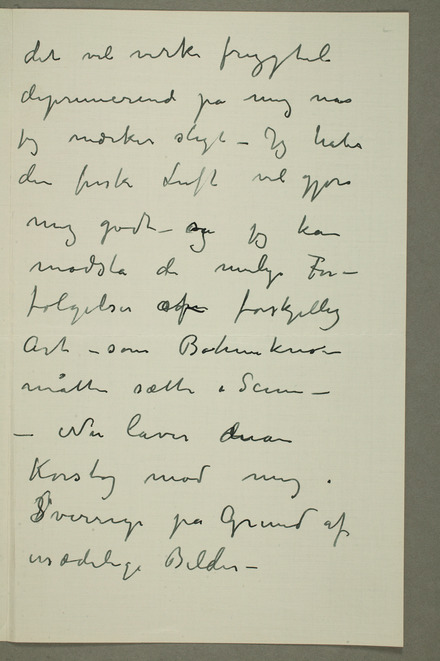 det vil virke frygtelig
deprimerend på mig naar
jeg mærker sligt – Jeg haber
den friske Luft vil gjøre
mig godt – og jeg kan
modstå de mulige For–
følgelser af forskjellig
Art – som Bohemknon
måtte sætte i Scene –
– Nu laver man
Korstog mod mig i
Sverrige på Grund af
usædelige Billder –